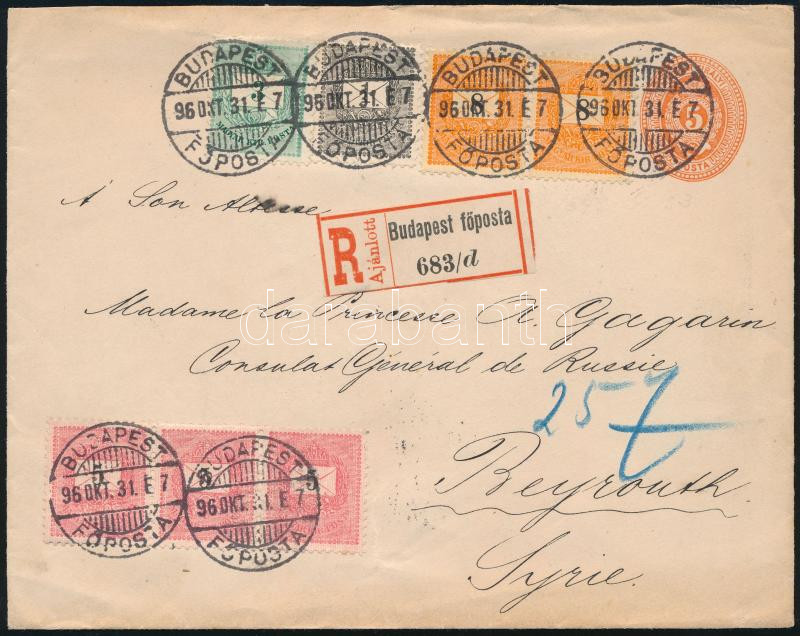 BUDAPEST
96 OKT. 31. E 7
FŐPOSTA
BUDAPEST
96 OKT. 31. E 7
FŐPOSTA
BUDAPEST
96 OKT. 31. E 7
FŐPOSTA
BUDAPEST
96 OKT. 31. E 7
FŐPOSTA
1
8
8
5
A' Son Altesse
R
Ajánlott
Budapest főposta
683/d
Madame la Princesse A. Gagarin
Consulat Général de Russie
darabanth
25
Beyrouth
Syrie.
BUDAPEST
96 OKT. 31. E 7
FŐPOSTA
BUDAPEST
96 OKT. 31. E 7
FŐPOSTA
5
5
5